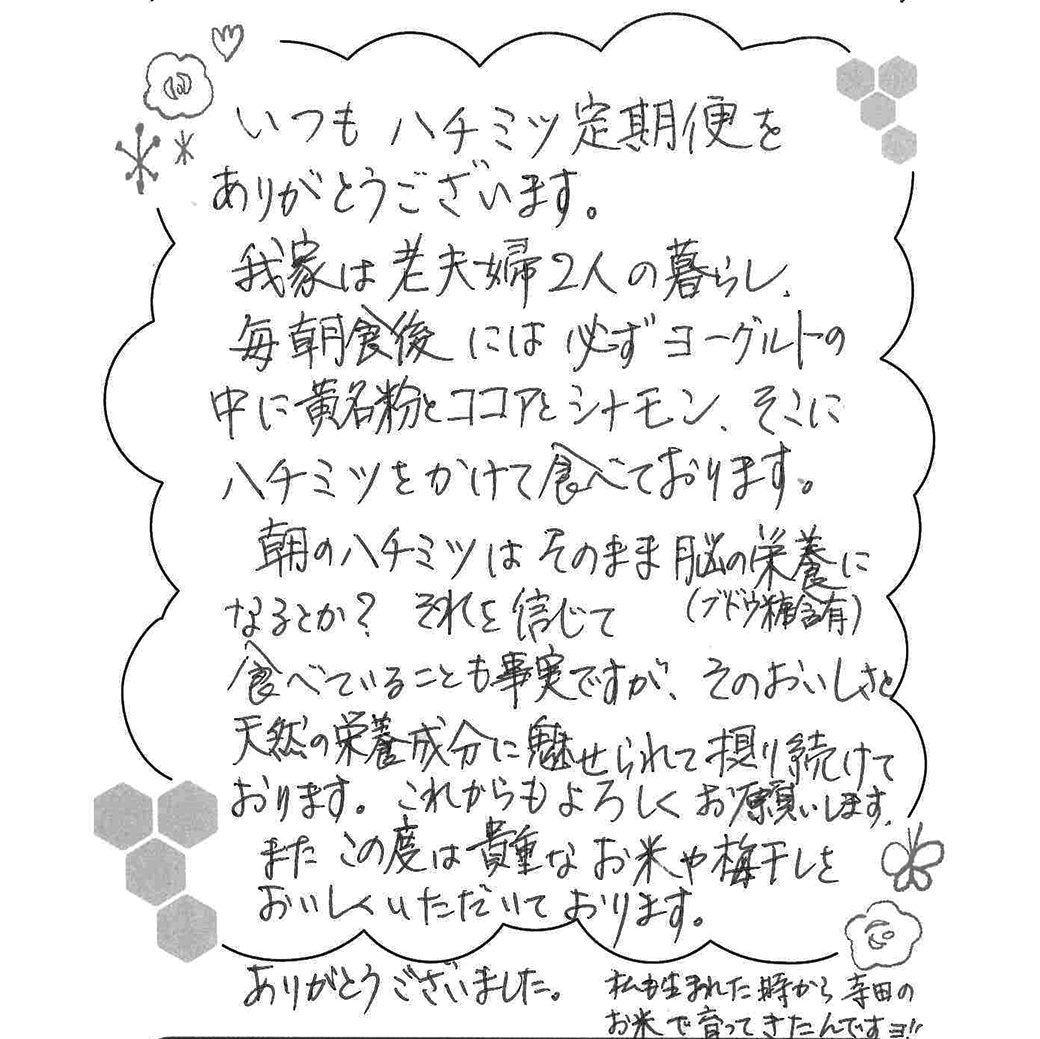 いつもハチミツ定期便を
ありがとうございます。
我家は老夫婦2人の暮らし、
毎朝食後には必ずヨーグルトの
中に黄名粉とココアとシナモン、そこに
ハチミツをかけて食べております。
朝のハチミツはそのまま脳の栄養に
(ブドウ糖含有)
なるとか? それを信じて
食べていることも事実ですが、そのおいしさと
天然の栄養成分に魅せられて摂り続けて
おります。これからもよろしくお願いします。
またこの度は貴重なお米や梅干しを
おいしくいただいております。
ありがとうございました。
私も生まれた時から寺田の
お米で育ってきたんですヨ!!